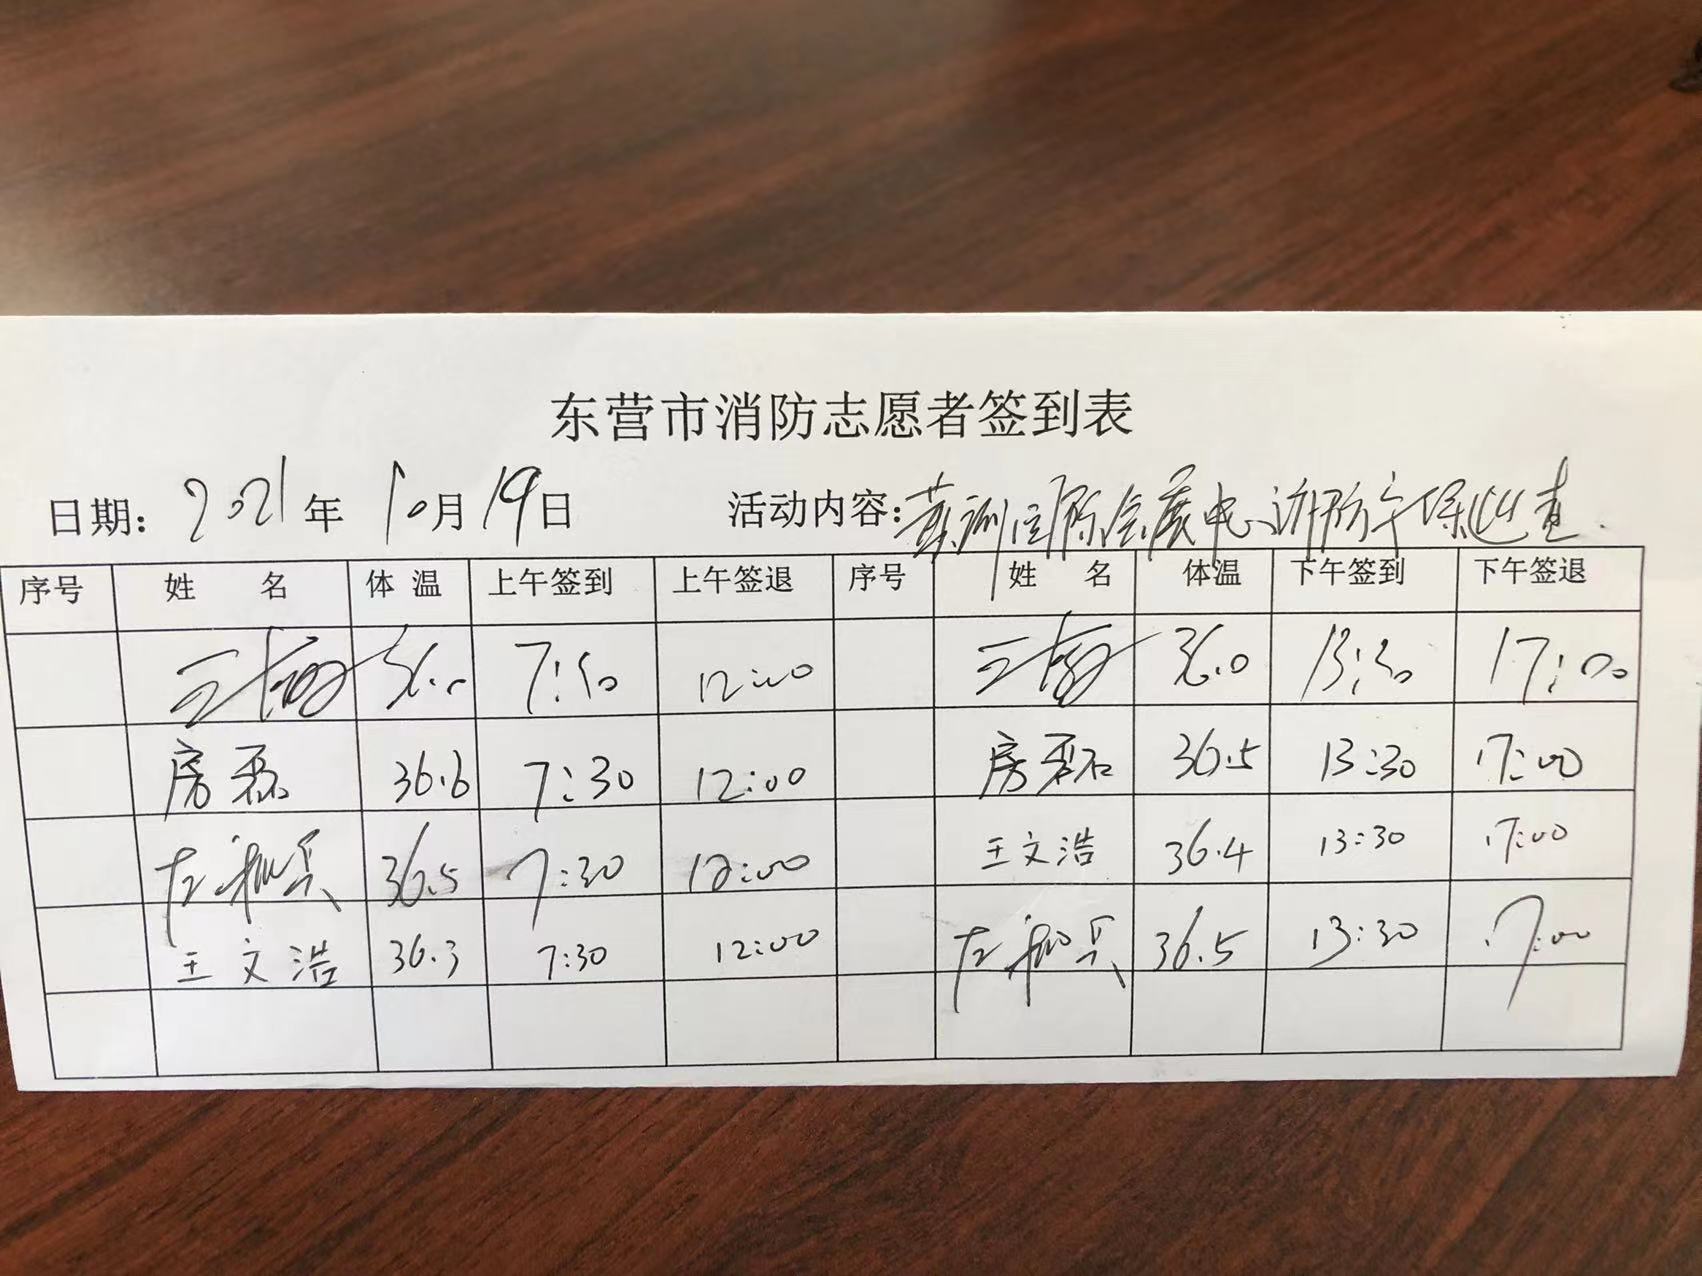 东营市消防志愿者签到表
日期：2021年10月19日 活动内容：黄河国际会展中心消防安保巡查.
序号 姓 名 体 温 上午签到 上午签退 序号 姓 名 体温 下午签到 下午签退
王 36. 7: 12:00 王 36.0 13:30 17:00
房磊 36.6 7:30 12:00 房磊 36.5 13:30 17:00
左 兵 36.5 7:30 12:00 王文浩 36.4 13:30 17:00
王文浩 36.3 7:30 12:00 左 兵 36.5 13:30 17:00